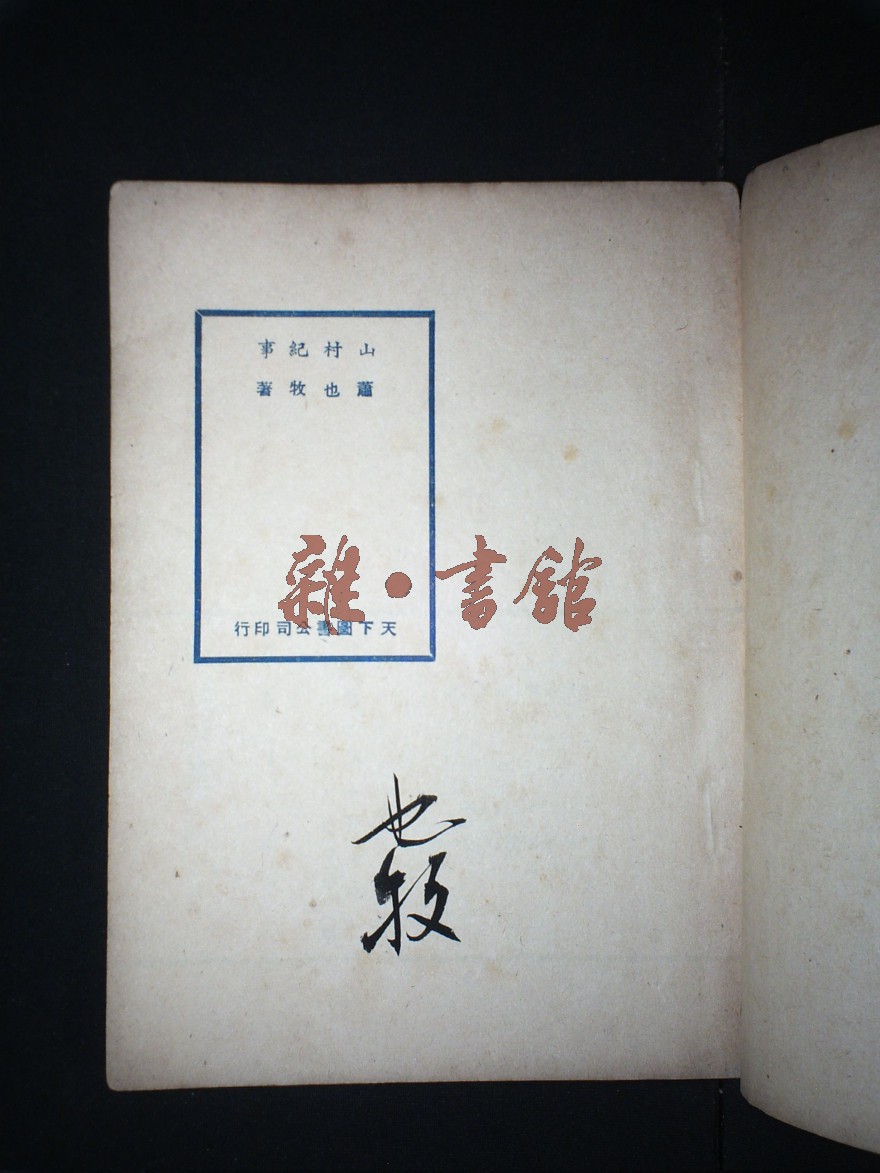 山村紀事
蕭也牧著
雜·書館
天下圖書公司印行
也牧